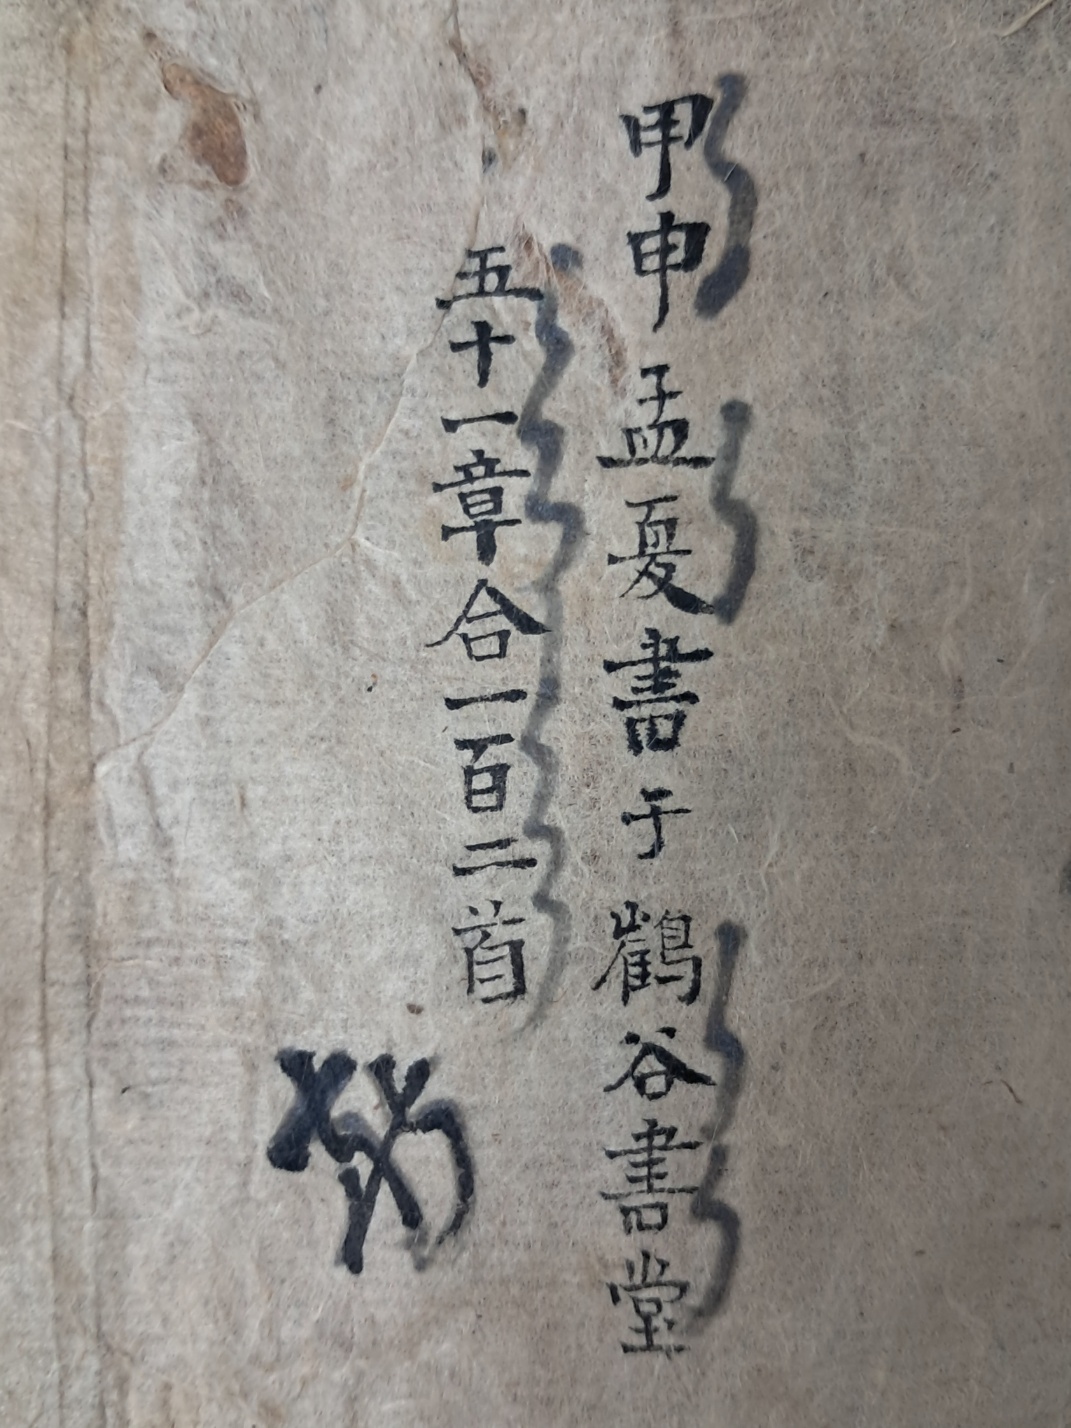 甲申孟夏書于鶴谷書堂
五十一章合一百二首